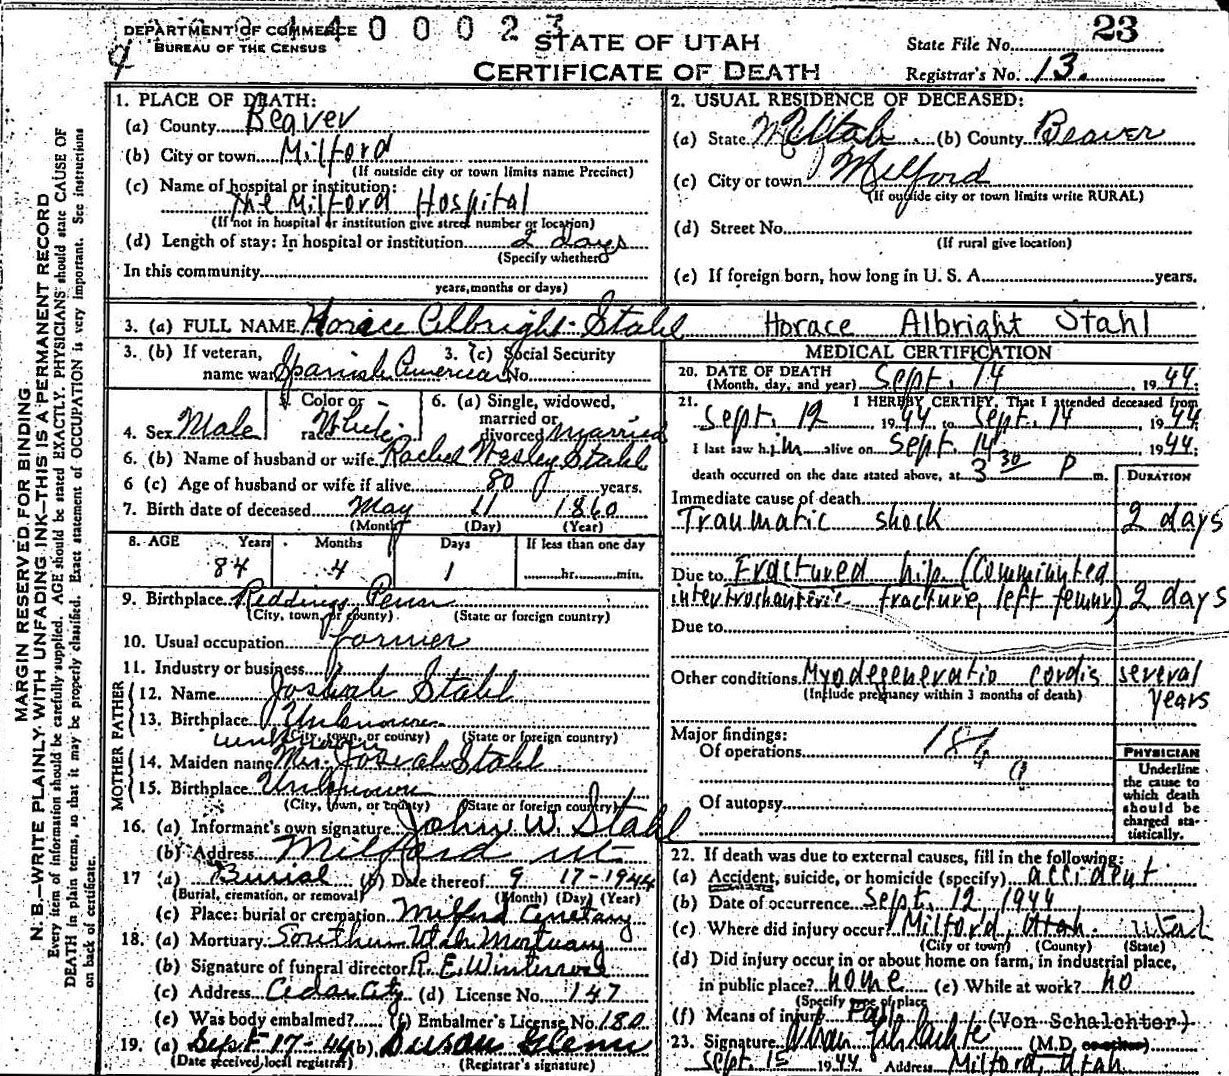 DEPARTMENT OF COMMERCE
BUREAU OF THE CENSUS
STATE OF UTAH
CERTIFICATE OF DEATH
State File No. 23
Registrar's No. 13.
MARGIN RESERVED FOR BINDING
N. B.—WRITE PLAINLY WITH UNFADING INK—THIS IS A PERMANENT RECORD
Every item of information should be carefully supplied. AGE should be stated EXACTLY. PHYSICIANS should state CAUSE OF
DEATH in plain terms, so that it may be properly classified. Exact statement of OCCUPATION is very important. See instructions
on back of certificate.
1. PLACE OF DEATH:
(a) County Beaver
(b) City or town Milford
(If outside city or town limits name Precinct)
(c) Name of hospital or institution:
The Milford Hospital
(If not in hospital or institution give street number or location)
(d) Length of stay: In hospital or institution 2 days
(Specify whether
In this community
years, months or days)
2. USUAL RESIDENCE OF DECEASED:
(a) State Utah (b) County Beaver
(c) City or town Milford
(If outside city or town limits write RURAL)
(d) Street No.
(If rural give location)
(e) If foreign born, how long in U. S. A. years.
3. (a) FULL NAME Horace Albright Stahl Horace Albright Stahl
3. (b) If veteran, name war Spanish American
3. (c) Social Security No.
4. Sex Male
5. Color or race White
6. (a) Single, widowed, married or divorced married
6. (b) Name of husband or wife Rachel Wesley Stahl
6 (c) Age of husband or wife if alive 80 years.
7. Birth date of deceased May 11 1860
(Month) (Day) (Year)
8. AGE Years Months Days If less than one day
84 4 1 hr. min.
9. Birthplace Reddings Penn
(City, town, or county) (State or foreign country)
10. Usual occupation farmer
11. Industry or business
FATHER
12. Name Joshiah Stahl
13. Birthplace Unknown
(City, town, or county) (State or foreign country)
MOTHER
unknown
14. Maiden name Mrs. Josiah Stahl
15. Birthplace Unknown
(City, town, or county) (State or foreign country)
16. (a) Informant's own signature John W. Stahl
(b) Address Milford Ut
17 (a) Burial (b) Date thereof 9 17-1944
(Burial, cremation, or removal) (Month) (Day) (Year)
(c) Place: burial or cremation Milford Cemetary
18. (a) Mortuary Southern Utah Mortuary
(b) Signature of funeral director R. E. Winterrose
(c) Address Cedar City (d) License No. 147
(e) Was body embalmed? (f) Embalmer's License No. 180
19. (a) Sept 17-44 (b) Susan Glenn
(Date received local registrar) (Registrar's signature)
MEDICAL CERTIFICATION
20. DATE OF DEATH
(Month, day, and year) Sept. 14, 1944.
21. I HEREBY CERTIFY, That I attended deceased from
Sept. 12 1944 to Sept. 14, 1944
I last saw him alive on Sept. 14 1944;
death occurred on the date stated above, at 3 30 P m.
DURATION
Immediate cause of death
Traumatic shock 2 days
Due to Fractured hip (Comminuted
intertrochanteric fracture, left femur) 2 days
Due to
Other conditions Myodegeneratio cordis several years
(Include pregnancy within 3 months of death)
Major findings:
Of operations
Of autopsy
PHYSICIAN
Underline
the cause to
which death
should be
charged sta-
tistically.
22. If death was due to external causes, fill in the following:
(a) Accident, suicide, or homicide (specify) accident
(b) Date of occurrence Sept. 12 1944
(c) Where did injury occur? Milford, Utah. Utah
(City or town) (County) (State)
(d) Did injury occur in or about home on farm, in industrial place,
in public place? home (e) While at work? no
(Specify type of place
(f) Means of injury Fall (Von Schalchter)
23. Signature (M.D. or other)
Sept. 15 1944 Address Milford, Utah